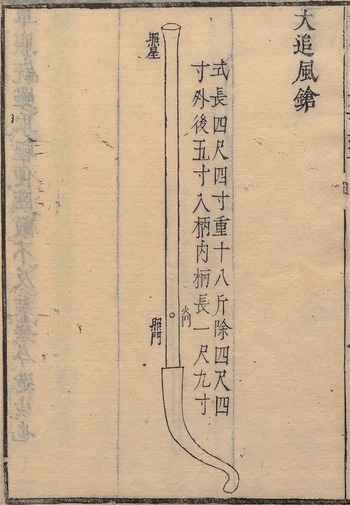 大追風鎗
式長四尺四寸重十八斤除四尺四
寸外後五寸入柄內柄長一尺九寸
照星
火門
照門